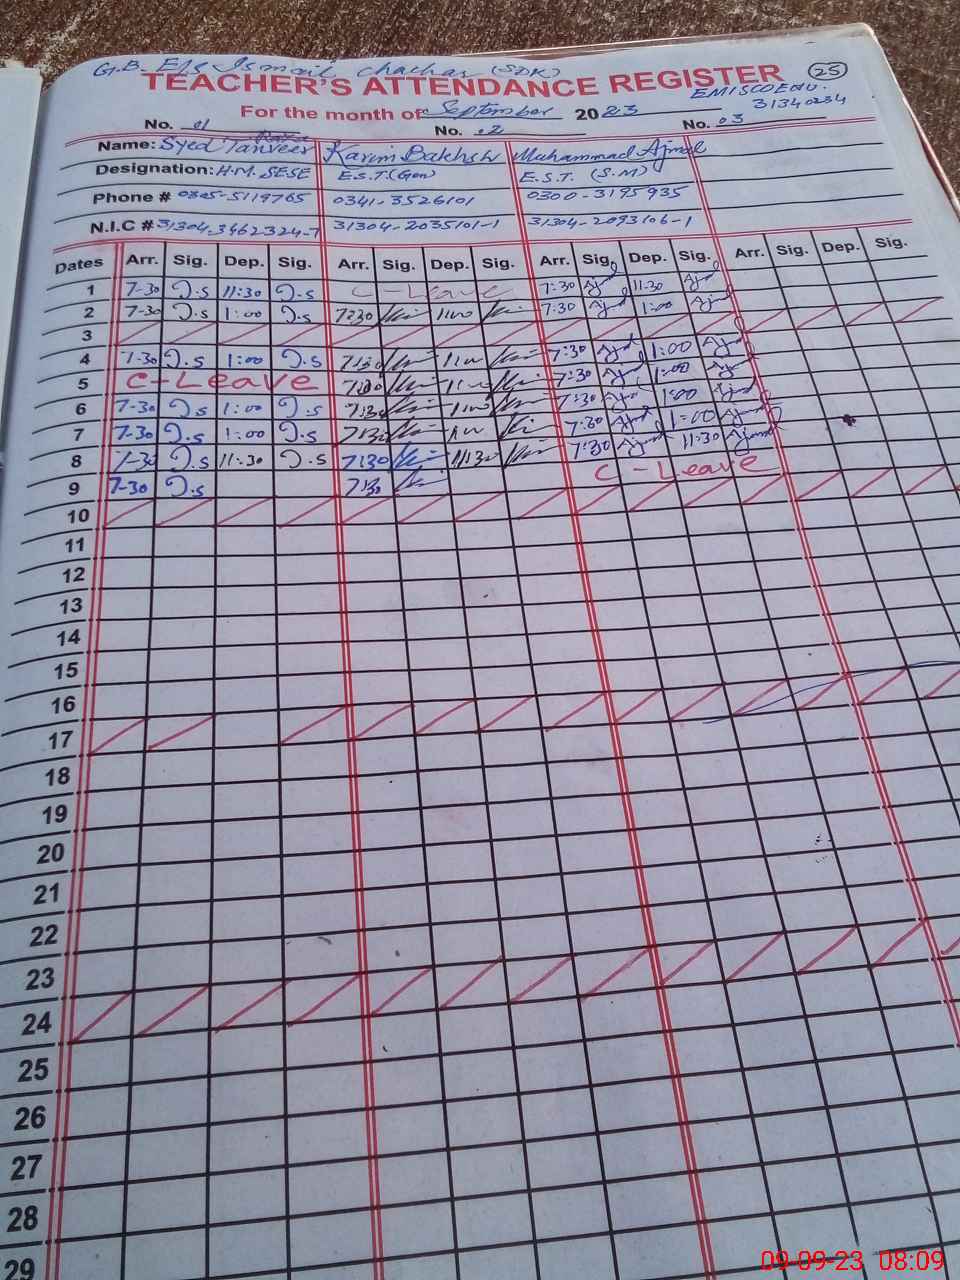 G.B. E/S Ismail chachar (SDK)
TEACHER'S ATTENDANCE REGISTER 25
For the month of September 2023 EMISCODE
31340234
No. 01 No. 02 No. 03
Name: Syed Tanveer Karim Bakhsh Muhammad Ajmal
Designation: H.M. SESE E.S.T (Gen) E.S.T. (S.M)
Phone # 0305-5119765 0341-3526101 0300-3195935
N.I.C # 31304-3462324-7 31304-2035101-1 31304-2093106-1
Dates Arr. Sig. Dep. Sig. Arr. Sig. Dep. Sig. Arr. Sig. Dep. Sig. Arr. Sig. Dep. Sig.
1 7-30 11:30 C-Leave 7:30 Ajmal 11-30
2 7-30 1:00 7:30 1:00 7:30 Ajmal 1:00 Ajmal
3
4 7-30 1:00 7:30 1:00 7:30 Ajmal 1:00 Ajmal
5 C-Leave 7:30 1:00 7:30 Ajmal 1:00 Ajmal
6 7-30 1:00 7:30 1:00 7:30 Ajmal 1:00 Ajmal
7 7-30 1:00 7:30 1:00 7:30 Ajmal 1:00 Ajmal
8 7-30 11:30 7:30 11:30 7:30 Ajmal 11:30 Ajmal
9 7-30 7:30 C-Leave
10
11
12
13
14
15
16
17
18
19
20
21
22
23
24
25
26
27
28
29
09-09-23 08:09